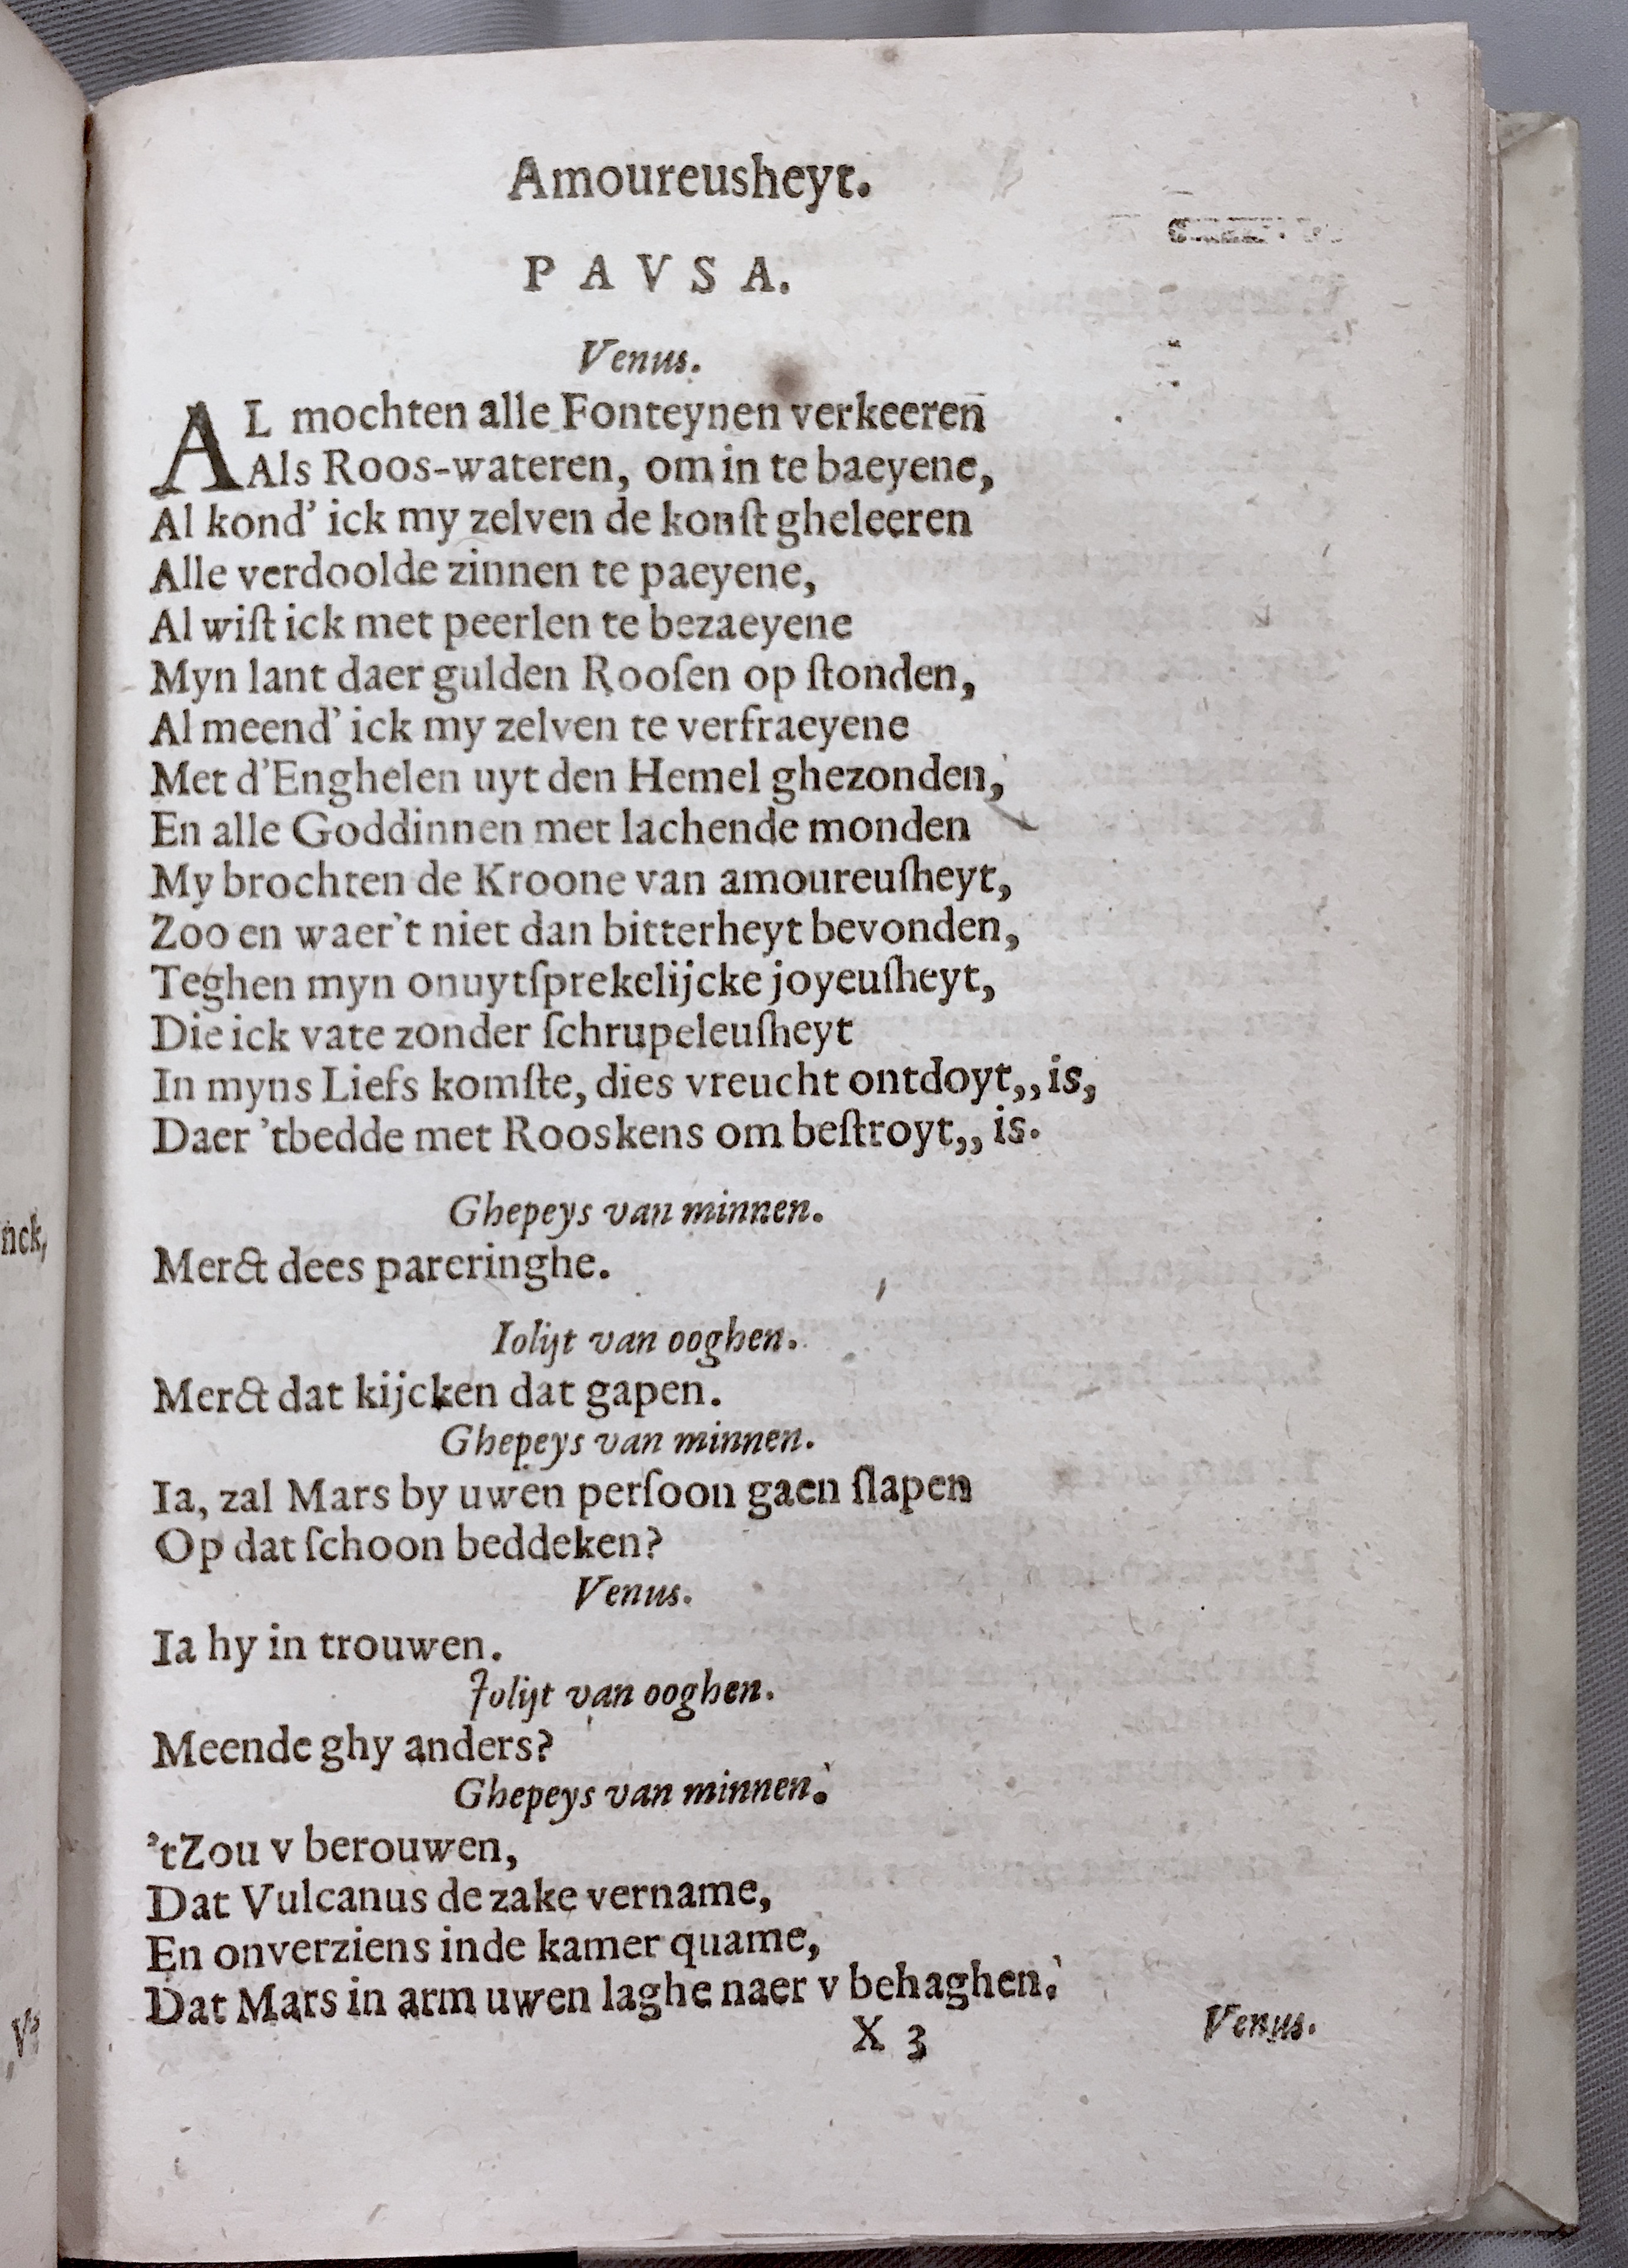 Amoureusheyt.
PAVSA.
Venus.
AL mochten alle Fonteynen verkeeren
Als Roos-wateren, om in te baeyene,
Al kond' ick my zelven de konſt gheleeren
Alle verdoolde zinnen te paeyene,
Al wiſt ick met peerlen te bezaeyene
Myn lant daer gulden Rooſen op ſtonden,
Al meend' ick my zelven te verfraeyene
Met d'Enghelen uyt den Hemel ghezonden,
En alle Goddinnen met lachende monden
My brochten de Kroone van amoureuſheyt,
Zoo en waer't niet dan bitterheyt bevonden,
Teghen myn onuytſprekelijcke joyeuſheyt,
Die ick vate zonder ſchrupeleuſheyt
In myns Liefs komſte, dies vreucht ontdoyt,, is,
Daer 'tbedde met Rooskens om beſtroyt,, is.
Ghepeys van minnen.
Merct dees pareringhe.
Iolijt van ooghen.
Merct dat kijcken dat gapen.
Ghepeys van minnen.
Ia, zal Mars by uwen perſoon gaen ſlapen
Op dat ſchoon beddeken?
Venus.
Ia hy in trouwen.
Jolijt van ooghen.
Meende ghy anders?
Ghepeys van minnen.
'tZou v berouwen,
Dat Vulcanus de zake vername,
En onverziens inde kamer quame,
Dat Mars in arm uwen laghe naer v behaghen.
X 3
Venus.
nck,